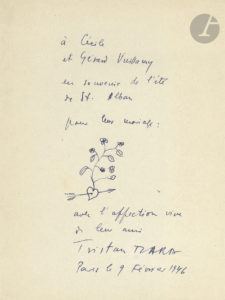 à Cécile
et Gérard Vulliamy
en souvenir de l'été
de St. Alban
pour leur mariage :
avec l'affection vive
de leur ami
Tristan TZARA
Paris le 9 Février 1946